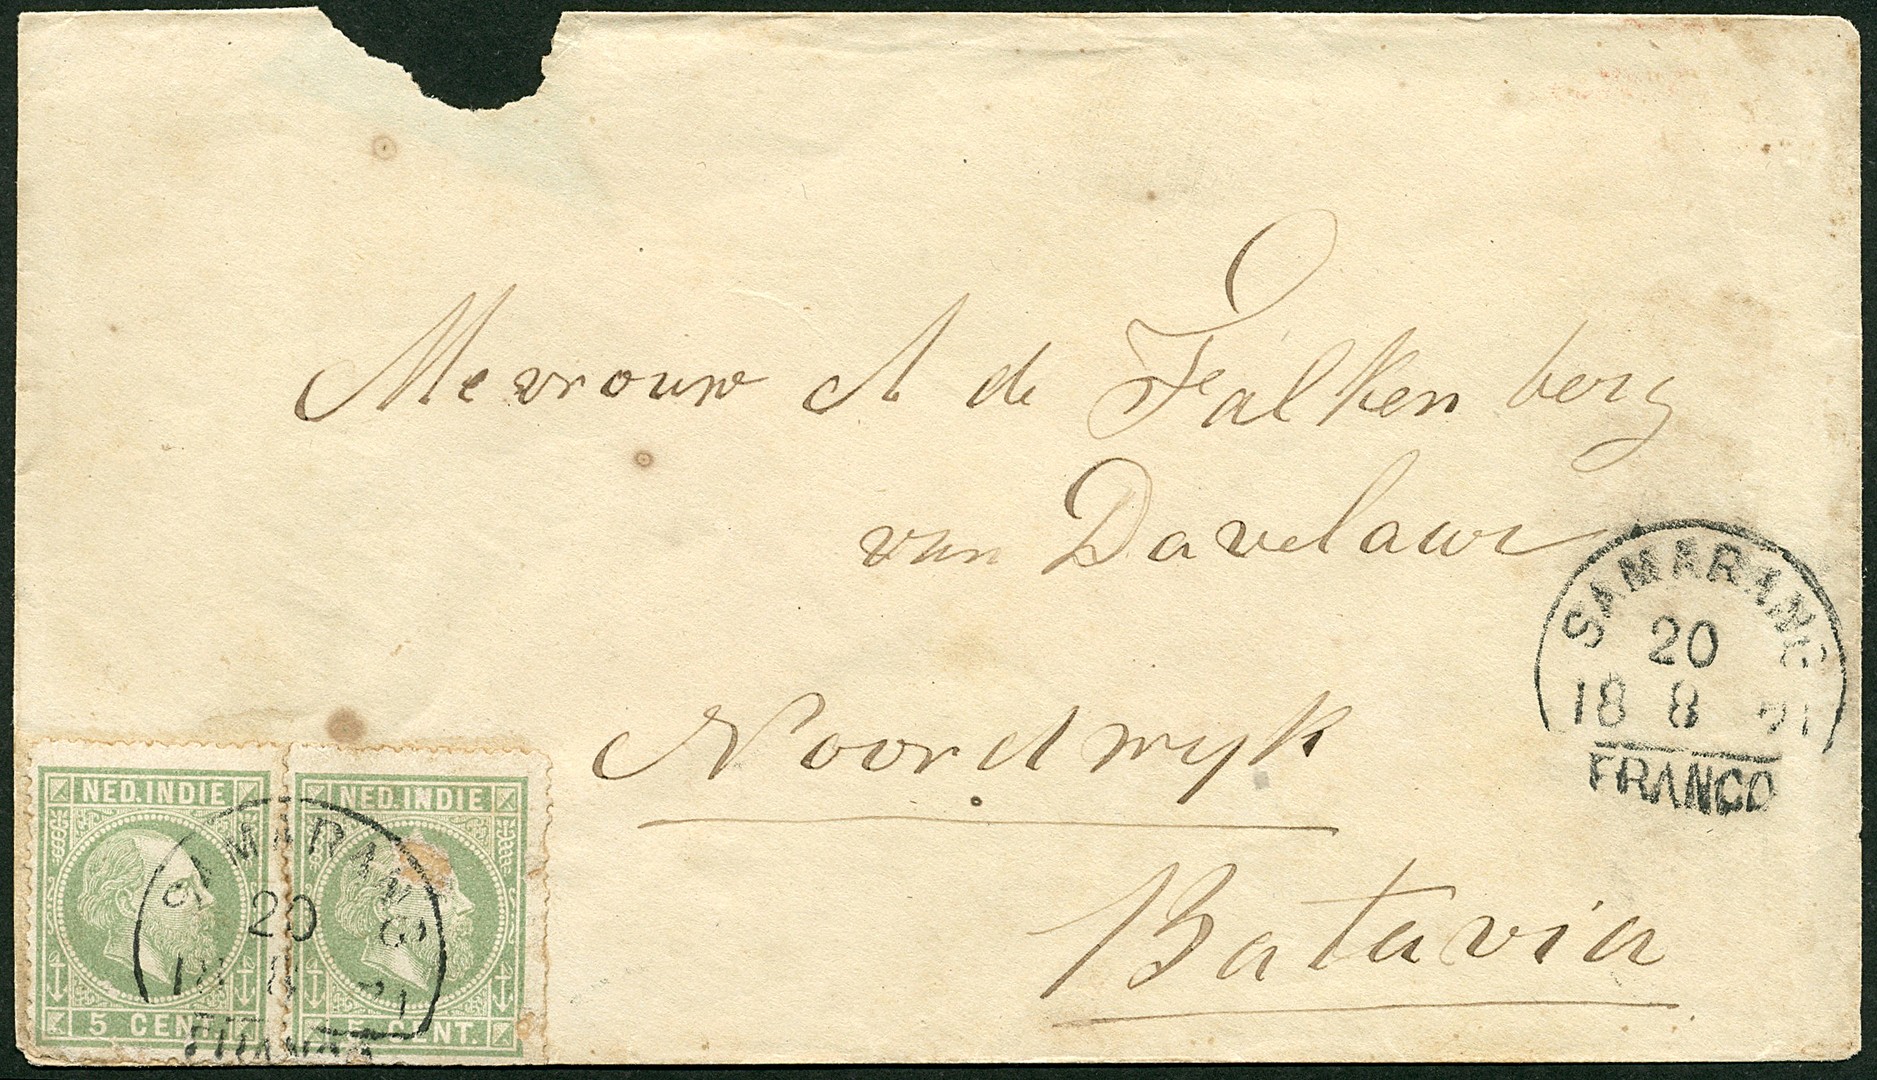 Mevrouw A de Falkenberg
van Davelaar
Noordwyk
Batavia
SAMARANG
20
18 8 71
FRANCO
NED. INDIE
5 CENT.
NED. INDIE
5 CENT.
SAMARANG
20
18 8 71
FRANCO